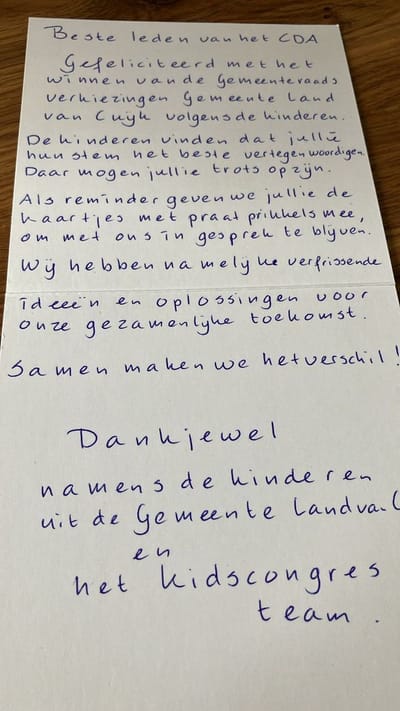 Beste leden van het CDA
Gefeliciteerd met het
winnen van de Gemeenteraads
verkiezingen Gemeente Land
van Cuijk volgens de kinderen.
De kinderen vinden dat jullie
hun stem het beste vertegenwoordigen.
Daar mogen jullie trots op zijn.
Als reminder geven we jullie de
kaartjes met praat prikkels mee,
om met ons in gesprek te blijven.
Wij hebben namelijke verfrissende
ideeën en oplossingen voor
onze gezamenlijke toekomst.
Samen maken we het verschil!
Dankjewel
namens de kinderen
uit de Gemeente Land van C
en
het kidscongres
team.